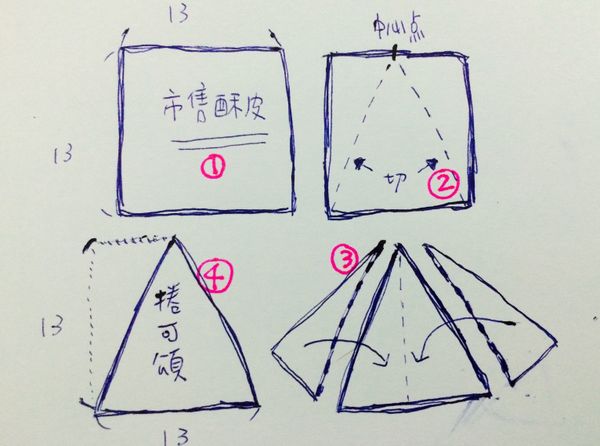 13
13
市售酥皮
①
中心点
切
②
③
④
13
捲可頌
13